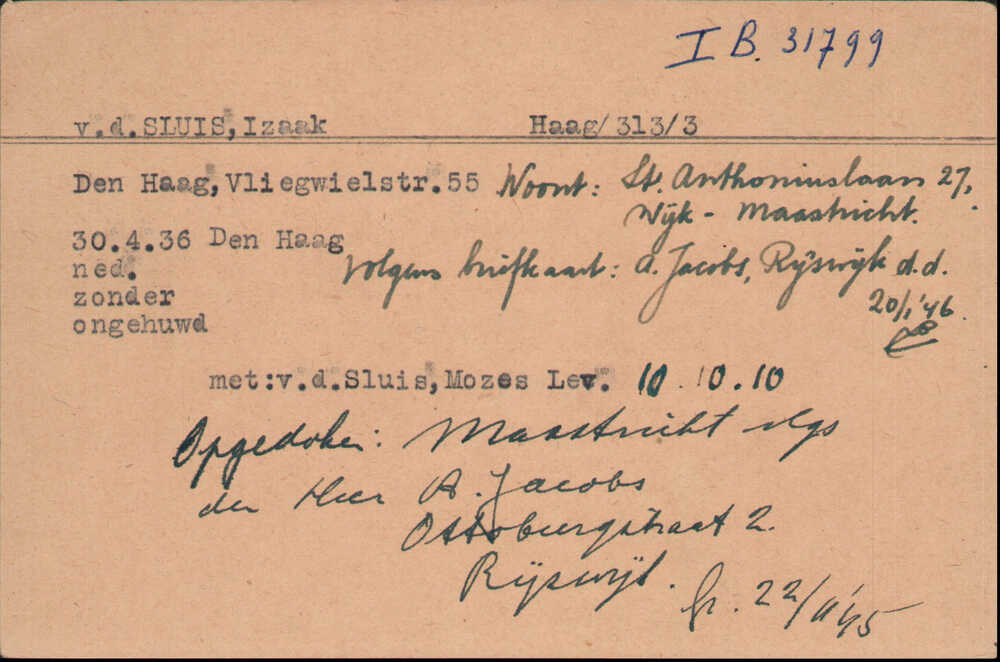 I B. 31799
v.d.SLUIS,Izaak Haag/313/3
Den Haag,Vliegwielstr.55 Woont: St. Anthoniuslaan 27,
Wijk - Maastricht.
30.4.36 Den Haag
ned. Volgens briefkaart: A. Jacobs, Rijswijk d.d.
zonder 20/1 '46.
ongehuwd
met:v.d.Sluis,Mozes Lev. 10.10.10
Opgedoken: Maastricht vlgs
den Heer A. Jacobs
Ottoburgstraat 2.
Rijswijk. 22/11 '45